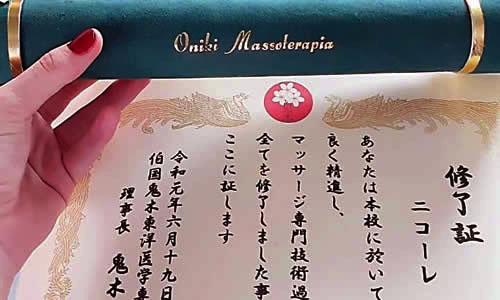 Oniki Massoterapia
修了証
ニコーレ
あなたは本校に於いて
良く精進し、
マッサージ専門技術過
全てを修了しました事
ここに証します
令和元年六月十九日
伯国鬼木東洋医学専
理事長 鬼木